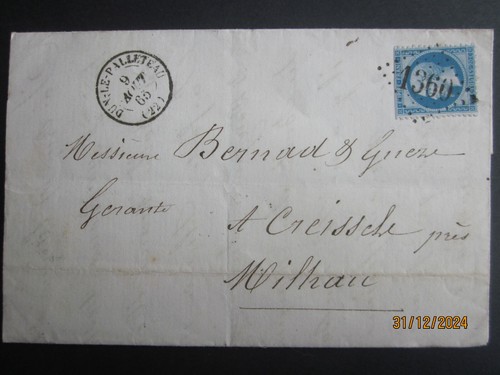 DUN-LE-PALLETEAU
9
AOUT
65
(22)
1360
Messieurs Bernad & Gueze
Gerants
A Creissels près
Milhau
31/12/2024